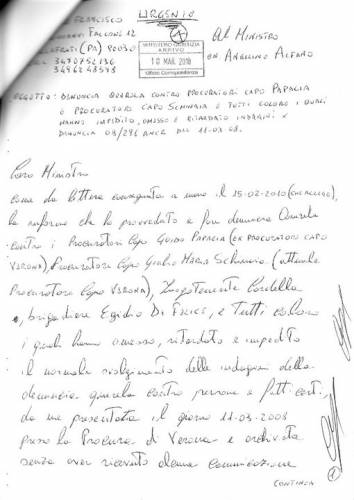 FRANCISCO
URGENTE
FALCONE 12
AL MINISTRO
(PA) 90030
ON. ANGELINO ALFANO
MINISTERO GIUSTIZIA
ARRIVO
10 MAR. 2010
Ufficio Corrispondenza
OGGETTO: DENUNCIA QUERELA CONTRO PROCURATORI CAPO PAPALIA
E PROCURATORE CAPO SCHINAIA E TUTTI COLORO I QUALI
HANNO IMPEDITO, OMESSO E RITARDATO INDAGINI X
DENUNCIA DEL 11-03-08.
Caro Ministro
come da lettera consegnata a mano il 15-02-2010 (CHE ALLEGO),
la informo che ho provveduto a fare denuncia Querela
contro i Procuratori Capo GUIDO PAPALIA (EX PROCURATORE CAPO
VERONA), Procuratore Capo Giulio MARIO Schinaia (attuale
Procuratore Capo VERONA), Luogotenente Cordella
, brigadiere Egidio DI FELICE, e Tutti coloro
i quali hanno omesso, ritardato e impedito
il normale svolgimento delle indagini della
denuncia querela contro persone e fatti certi,
da me presentata il giorno 11-03-2008
presso la Procura di Verona e archiviata
senza aver ricevuto alcuna comunicazione
CONTINUA
1